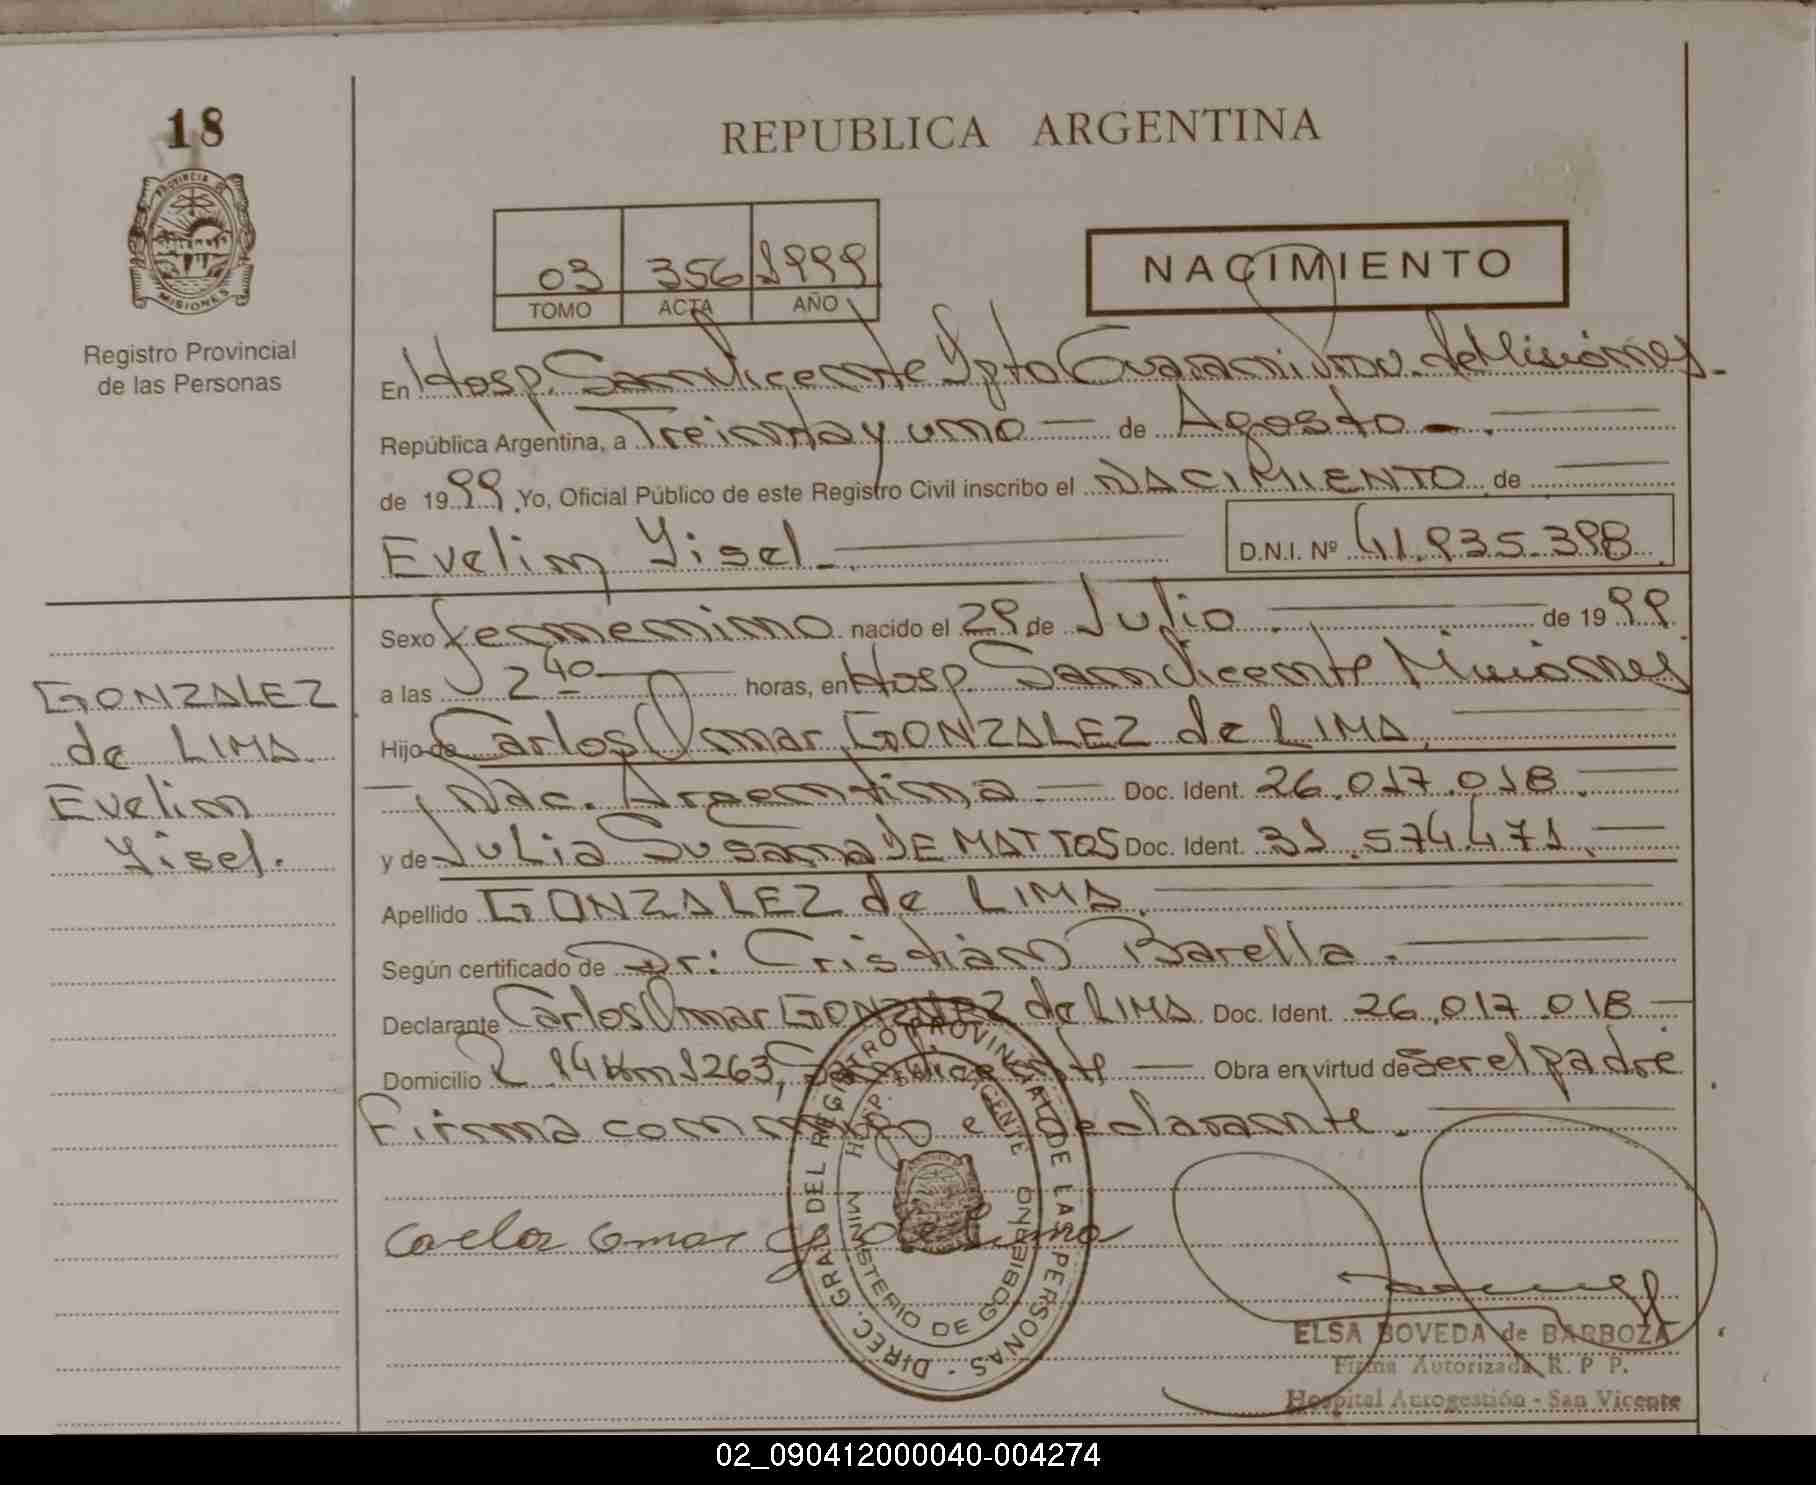 18
PROVINCIA DE
MISIONES
Registro Provincial
de las Personas
REPUBLICA ARGENTINA
03 356 1999
TOMO ACTA AÑO
NACIMIENTO
En Hosp. San Vicente Dpto Guarani Prov. de Misiones.
República Argentina, a Treinta y uno — de Agosto -.
de 1999. Yo, Oficial Público de este Registro Civil inscribo el NACIMIENTO de
Evelin Yisel -.
D.N.I. Nº 41.935.398
Sexo femenino nacido el 29 de Julio. de 1999
a las 2 40 horas, en Hosp. San Vicente Misiones
Hijo de Carlos Omar GONZALEZ de LIMA.
Nac. Argentina — Doc. Ident. 26.017.018.
y de Julia Susana DE MATTOS Doc. Ident. 31.574.471.
Apellido GONZALEZ de LIMA.
Según certificado de Dr: Cristian Barella.
Declarante Carlos Omar GONZALEZ de LIMA Doc. Ident. 26.017.018
Domicilio R 14 Km 1263, San Vicente — Obra en virtud de Ser el padre
Firma conmigo el declarante.
GONZALEZ
de LIMA
Evelin
Yisel.
DIREC. GRAL DEL REGISTRO PROVINCIAL DE LAS PERSONAS
HOSP. VICENTE
MINISTERIO DE GOBIERNO
Carlos Omar G de Lima
ELSA BOVEDA de BARBOZA
Firma Autorizada R. P. P.
Hospital Autogestión - San Vicente
02_090412000040-004274